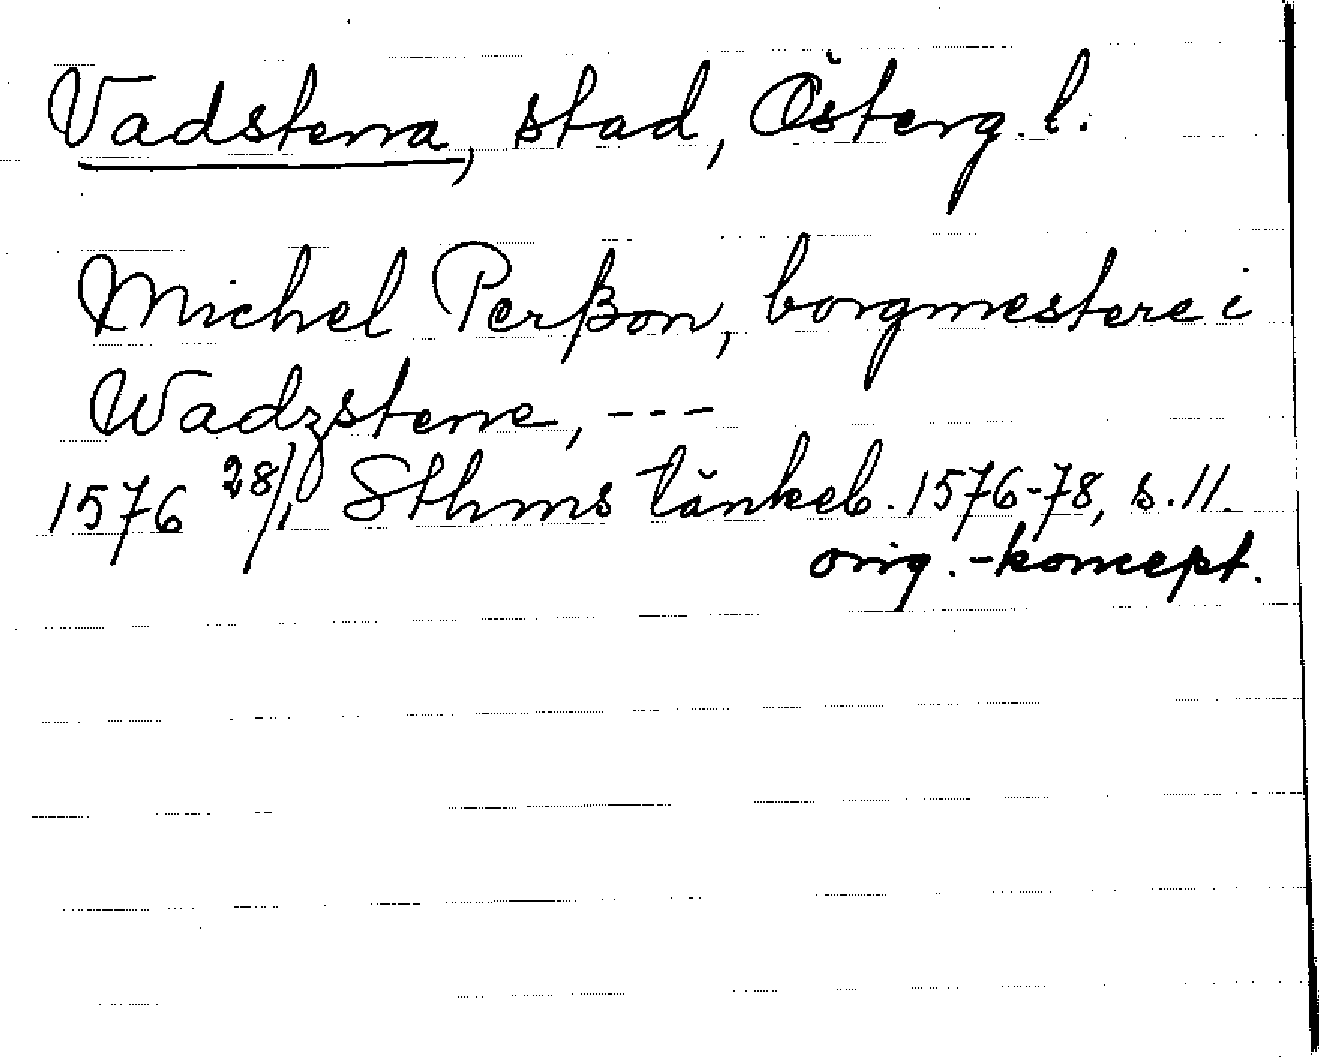 Vadstena, stad, Österg. l.
Michel Perßon, borgmestere i
Wadzstene, ---
1576 28/1 Sthms tänkeb. 1576-78, s. 11.
orig.-koncept.